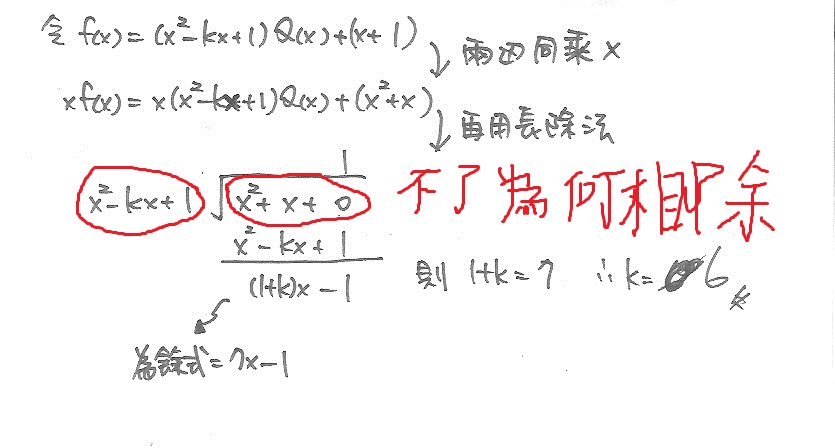 令 f(x) = (x²-kx+1) Q(x) + (x+1)
兩邊同乘 x
xf(x) = x(x²-kx+1)Q(x) + (x²+x)
再用長除法
1
x²-kx+1 √ x²+x+0
不了為何相除
x²-kx+1
(1+k)x-1 則 1+k=7 ∴k=6
為餘式=7x-1